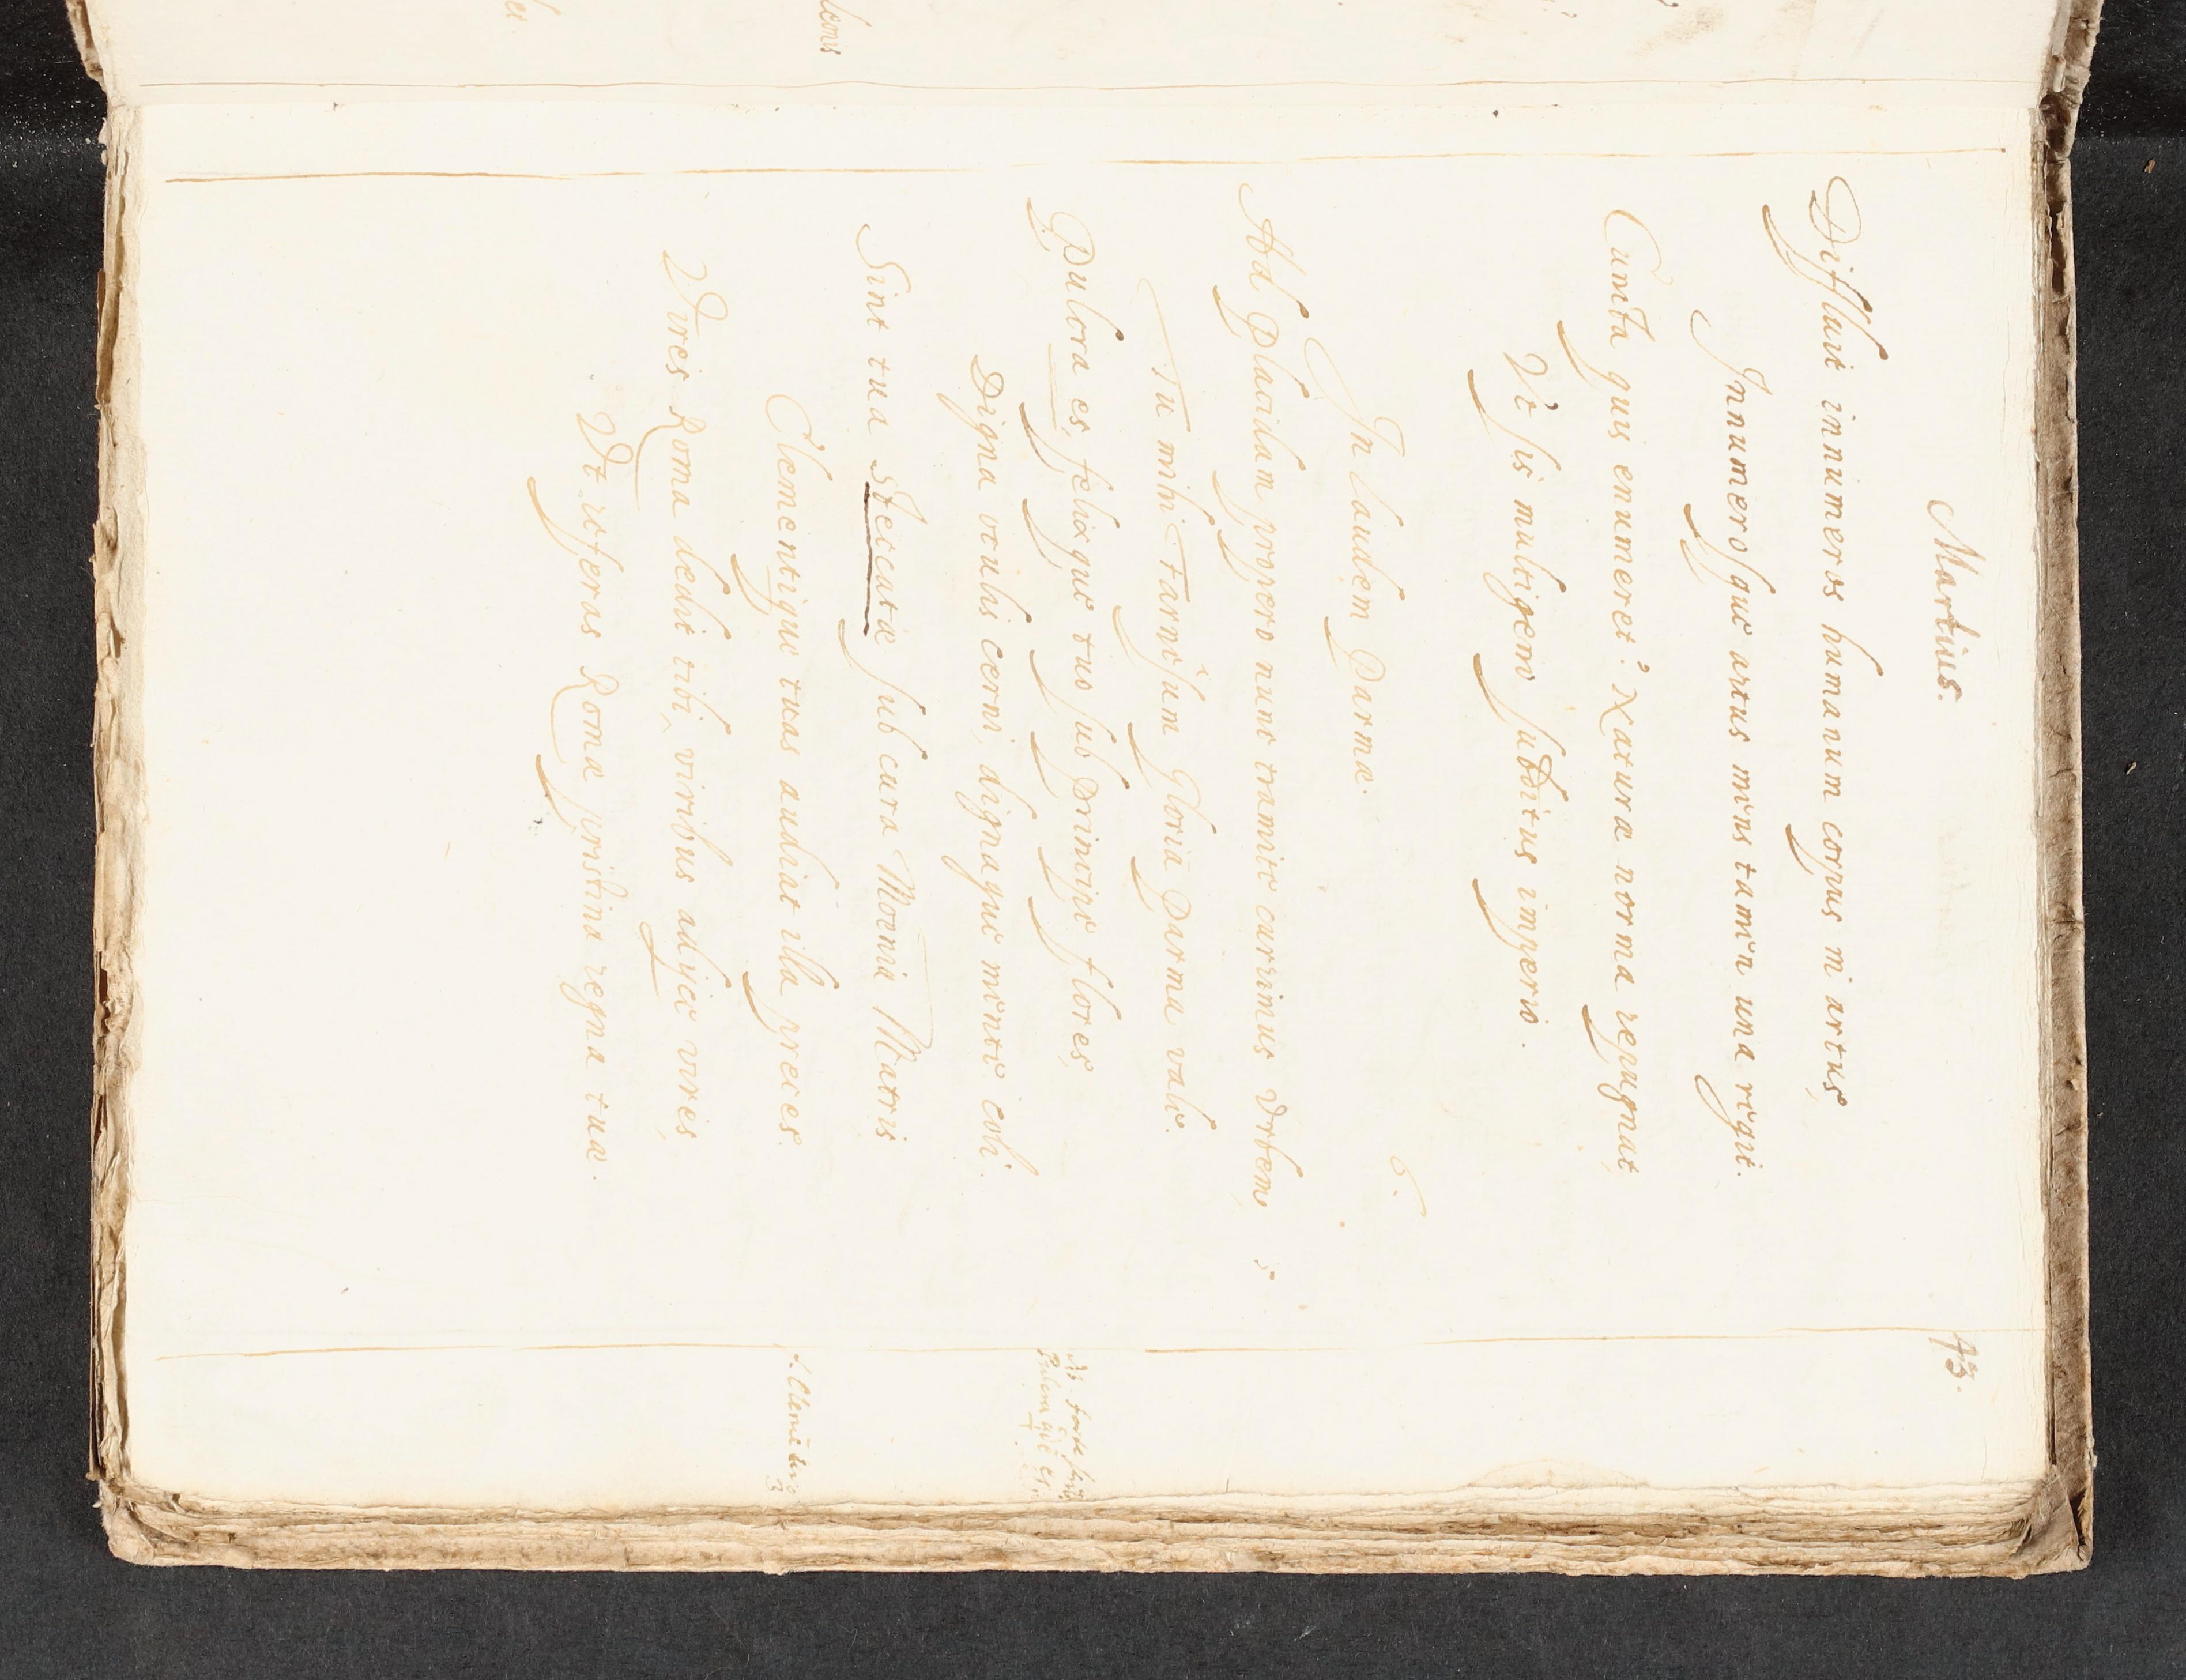 Martius. 43.
Diffluit innumeros humanum corpus in artus,
Innumerosque artus mens tamen una regit.
Cuncta quis enumeret? Naturæ norma repugnat,
Vt sis multigeno subditus imperio.
6.
In laudem Parmæ.
Ad Placidam propero nunc tramite currimus Vrbem,
Tu mihi Farnesum gloria Parma vale.
Pulcra es, felixque tuo sub Principe flores,
Digna oculis cerni, dignaque mente coli.
Sint tua Steccatæ sub cura Moenia Matris
Clementique tuas audiat illa preces.
Vires Roma dedit tibi, viribus adijce vires,
Vt referas Romæ pristina regna tuæ.
Pulcra que es.